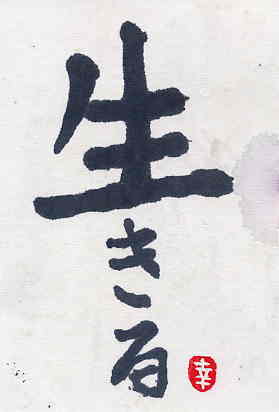 生きる
幸